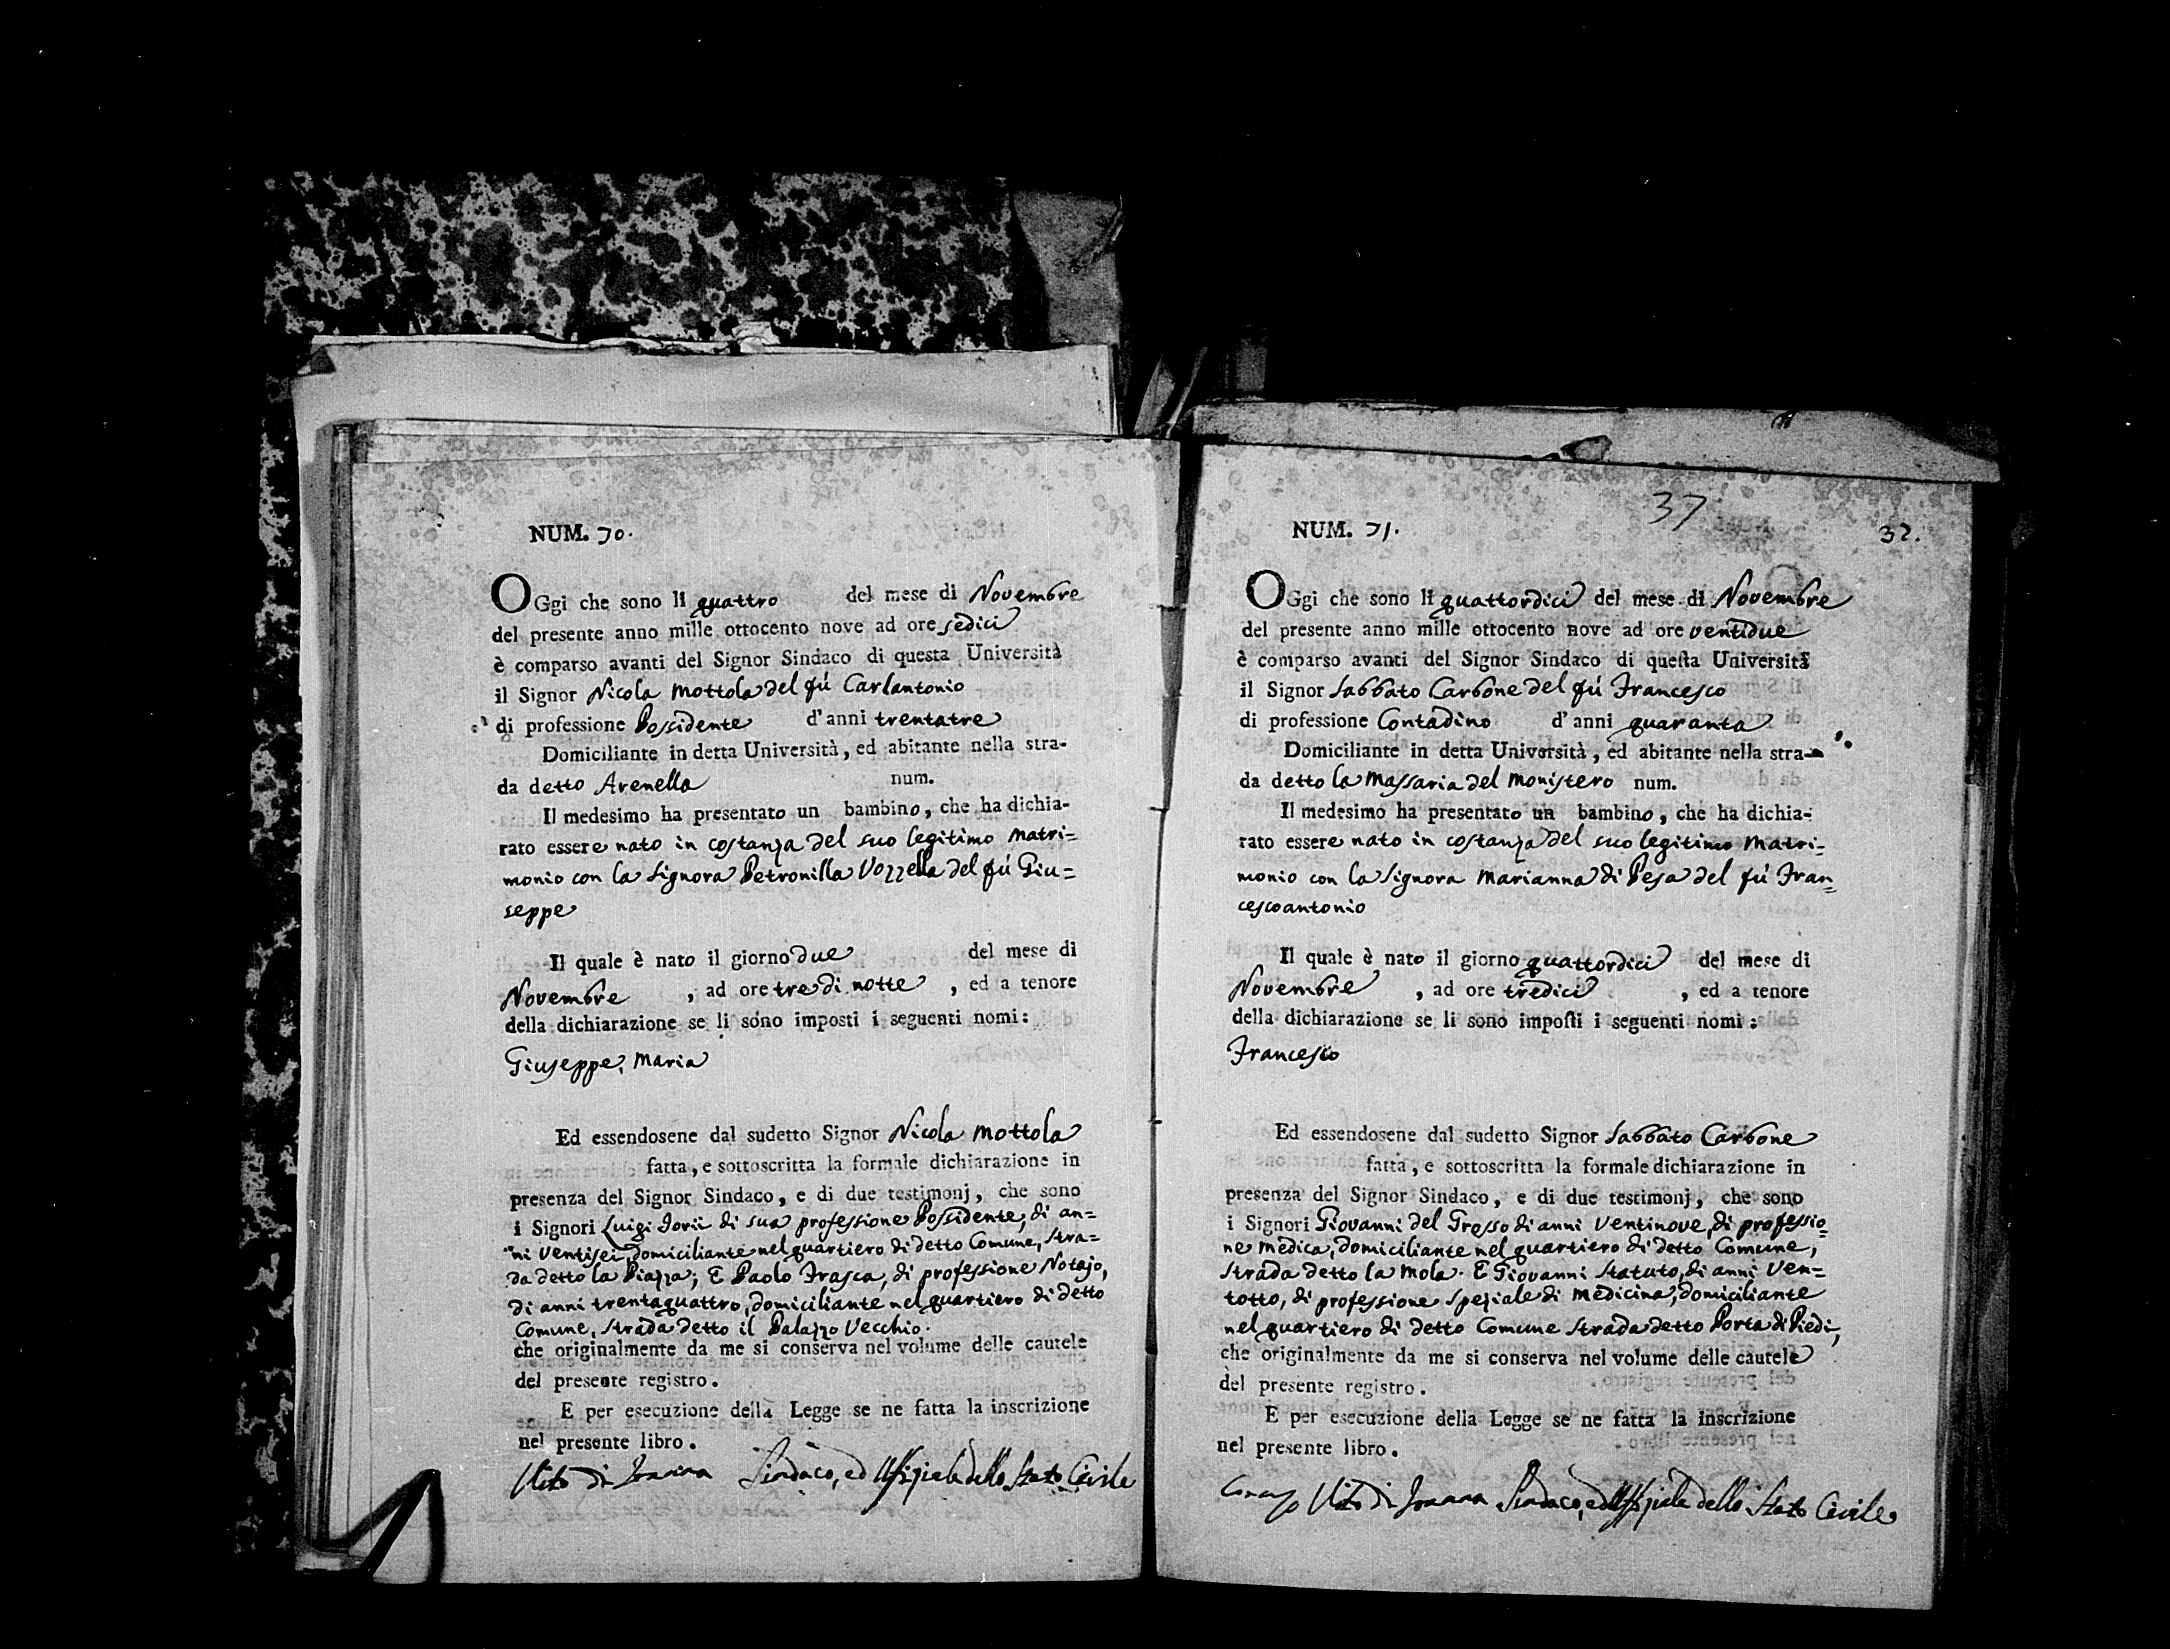 NUM. 70.
OGgi che sono li quattro del mese di Novembre
del presente anno mille ottocento nove ad ore sedici
è comparso avanti del Signor Sindaco di questa Università
il Signor Nicola Mottola del fú Carlantonio
di professione Possidente d'anni trentatre
Domiciliante in detta Università, ed abitante nella stra-
da detto Arenella num.
Il medesimo ha presentato un bambino, che ha dichia-
rato essere nato in costanza del suo legitimo Matri=
monio con la Signora Petronilla Vozzella del fú Giu=
seppe
Il quale è nato il giorno due del mese di
Novembre, ad ore tre di notte, ed a tenore
della dichiarazione se li sono imposti i seguenti nomi:
Giuseppe, Maria
Ed essendosene dal sudetto Signor Nicola Mottola
fatta, e sottoscritta la formale dichiarazione in
presenza del Signor Sindaco, e di due testimonj, che sono
i Signori Luigi Jorii di sua professione Possidente, di an=
ni Ventisei, domiciliante nel quartiero di detto Comune, Stra=
da detto la Piazza; E Paolo Frasca, di professione Notajo,
di anni trentaquattro, domiciliante nel quartiero di detto
Comune, Strada detto il Palazzo Vecchio.
che originalmente da me si conserva nel volume delle cautele
del presente registro.
E per esecuzione della Legge se ne fatta la inscrizione
nel presente libro.
Vito di Sindaco, ed Uffiziale dello Stato Civile
37
NUM. 71. 37.
OGgi che sono li quattordici del mese di Novembre
del presente anno mille ottocento nove ad ore ventidue
è comparso avanti del Signor Sindaco di questa Università
il Signor Sabbato Carbone del fú Francesco
di professione Contadino d'anni quaranta
Domiciliante in detta Università, ed abitante nella stra-
da detto la Massaria del Monistero num.
Il medesimo ha presentato un bambino, che ha dichia-
rato essere nato in costanza del suo legitimo Matri=
monio con la Signora Marianna di Pesa del fú Fran=
cescoantonio
Il quale è nato il giorno quattordici del mese di
Novembre, ad ore tredici, ed a tenore
della dichiarazione se li sono imposti i seguenti nomi:
Francesco
Ed essendosene dal sudetto Signor Sabbato Carbone
fatta, e sottoscritta la formale dichiarazione in
presenza del Signor Sindaco, e di due testimonj, che sono
i Signori Giovanni del Grosso di anni Ventinove, di professio=
ne Medica, domiciliante nel quartiero di detto Comune,
Strada detto la Mola. E Giovanni Statuto, di anni Ven=
totto, di professione Speziale di Medicina, domiciliante
nel quartiero di detto Comune Strada detto Porta di Piedi,
che originalmente da me si conserva nel volume delle cautele
del presente registro.
E per esecuzione della Legge se ne fatta la inscrizione
nel presente libro.
Vito di Sindaco, ed Uffiziale dello Stato Civile